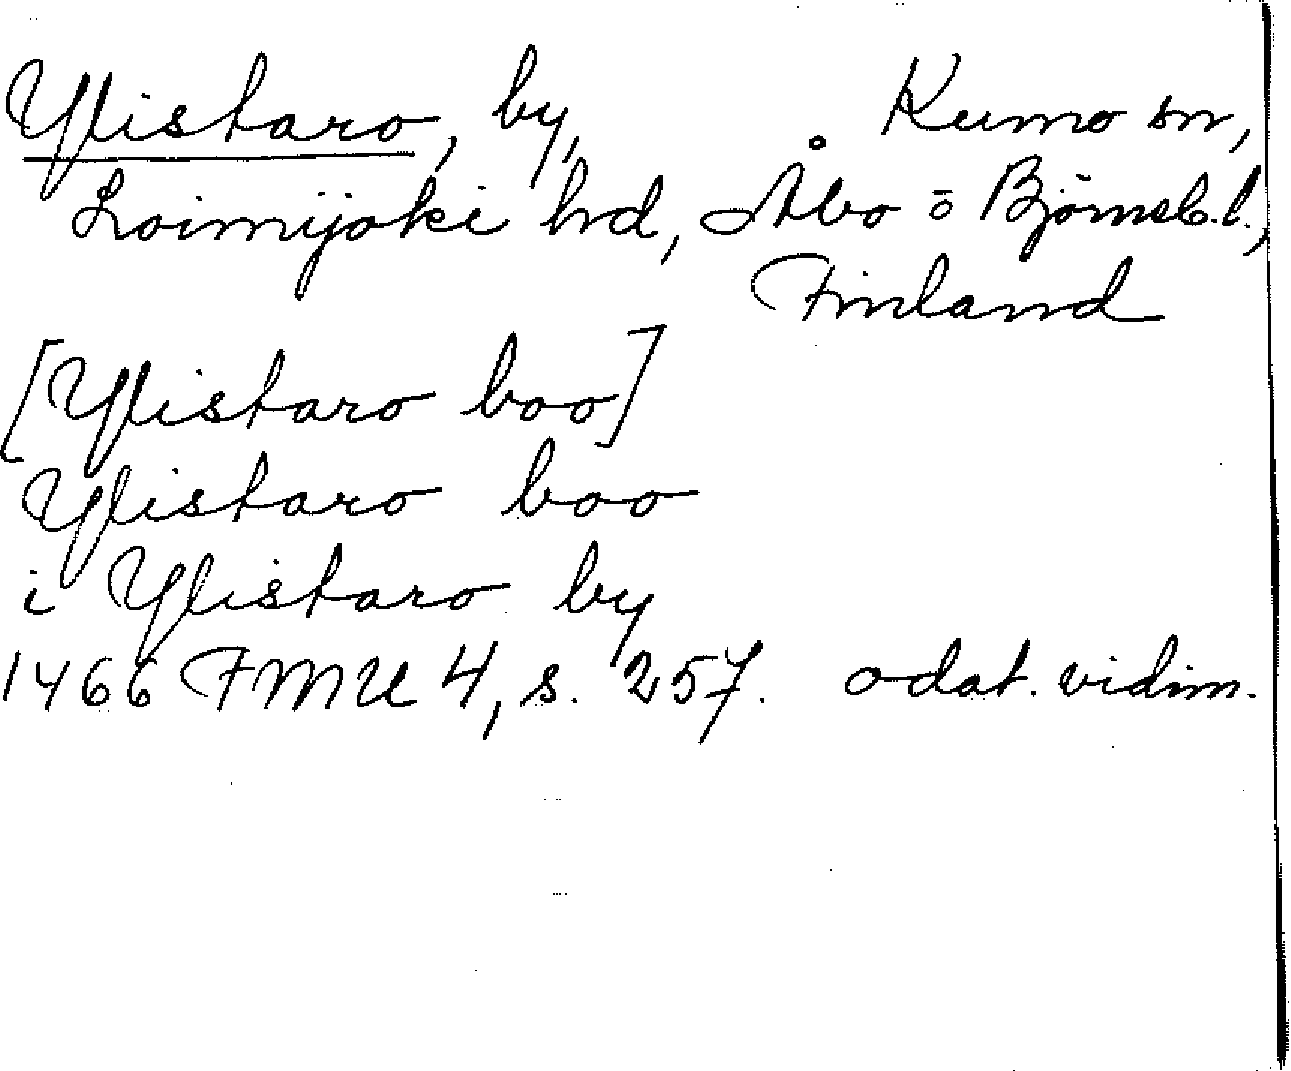 Ylistaro, by, Kumo sn,
Loimijoki hd, Åbo o Björneb. l.,
Finland
[Ylistaro boo]
Ylistaro boo
i Ylistaro by
1466 FMU 4, s. 257. odat. vidim.